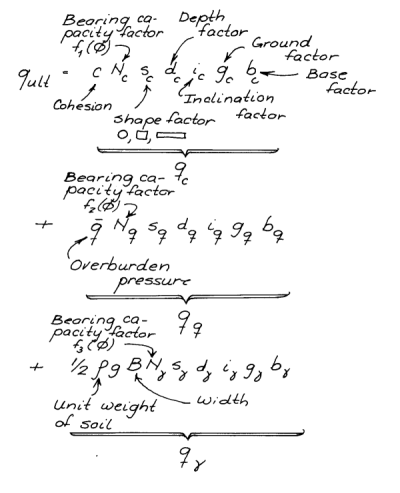 Bearing ca-
pacity factor
f₁(Ø)
Depth
factor
Ground
factor
q_ult = c N_c s_c d_c i_c g_c b_c
Base
factor
Cohesion
Inclination
factor
Shape factor
q_c
Bearing ca-
pacity factor
f₂(Ø)
+ q̄ N_q s_q d_q i_q g_q b_q
Overburden
pressure
q_q
Bearing ca-
pacity factor
f₃(Ø)
+ 1/2 ρg B N_γ s_γ d_γ i_γ g_γ b_γ
Unit weight
of soil
Width
q_γ